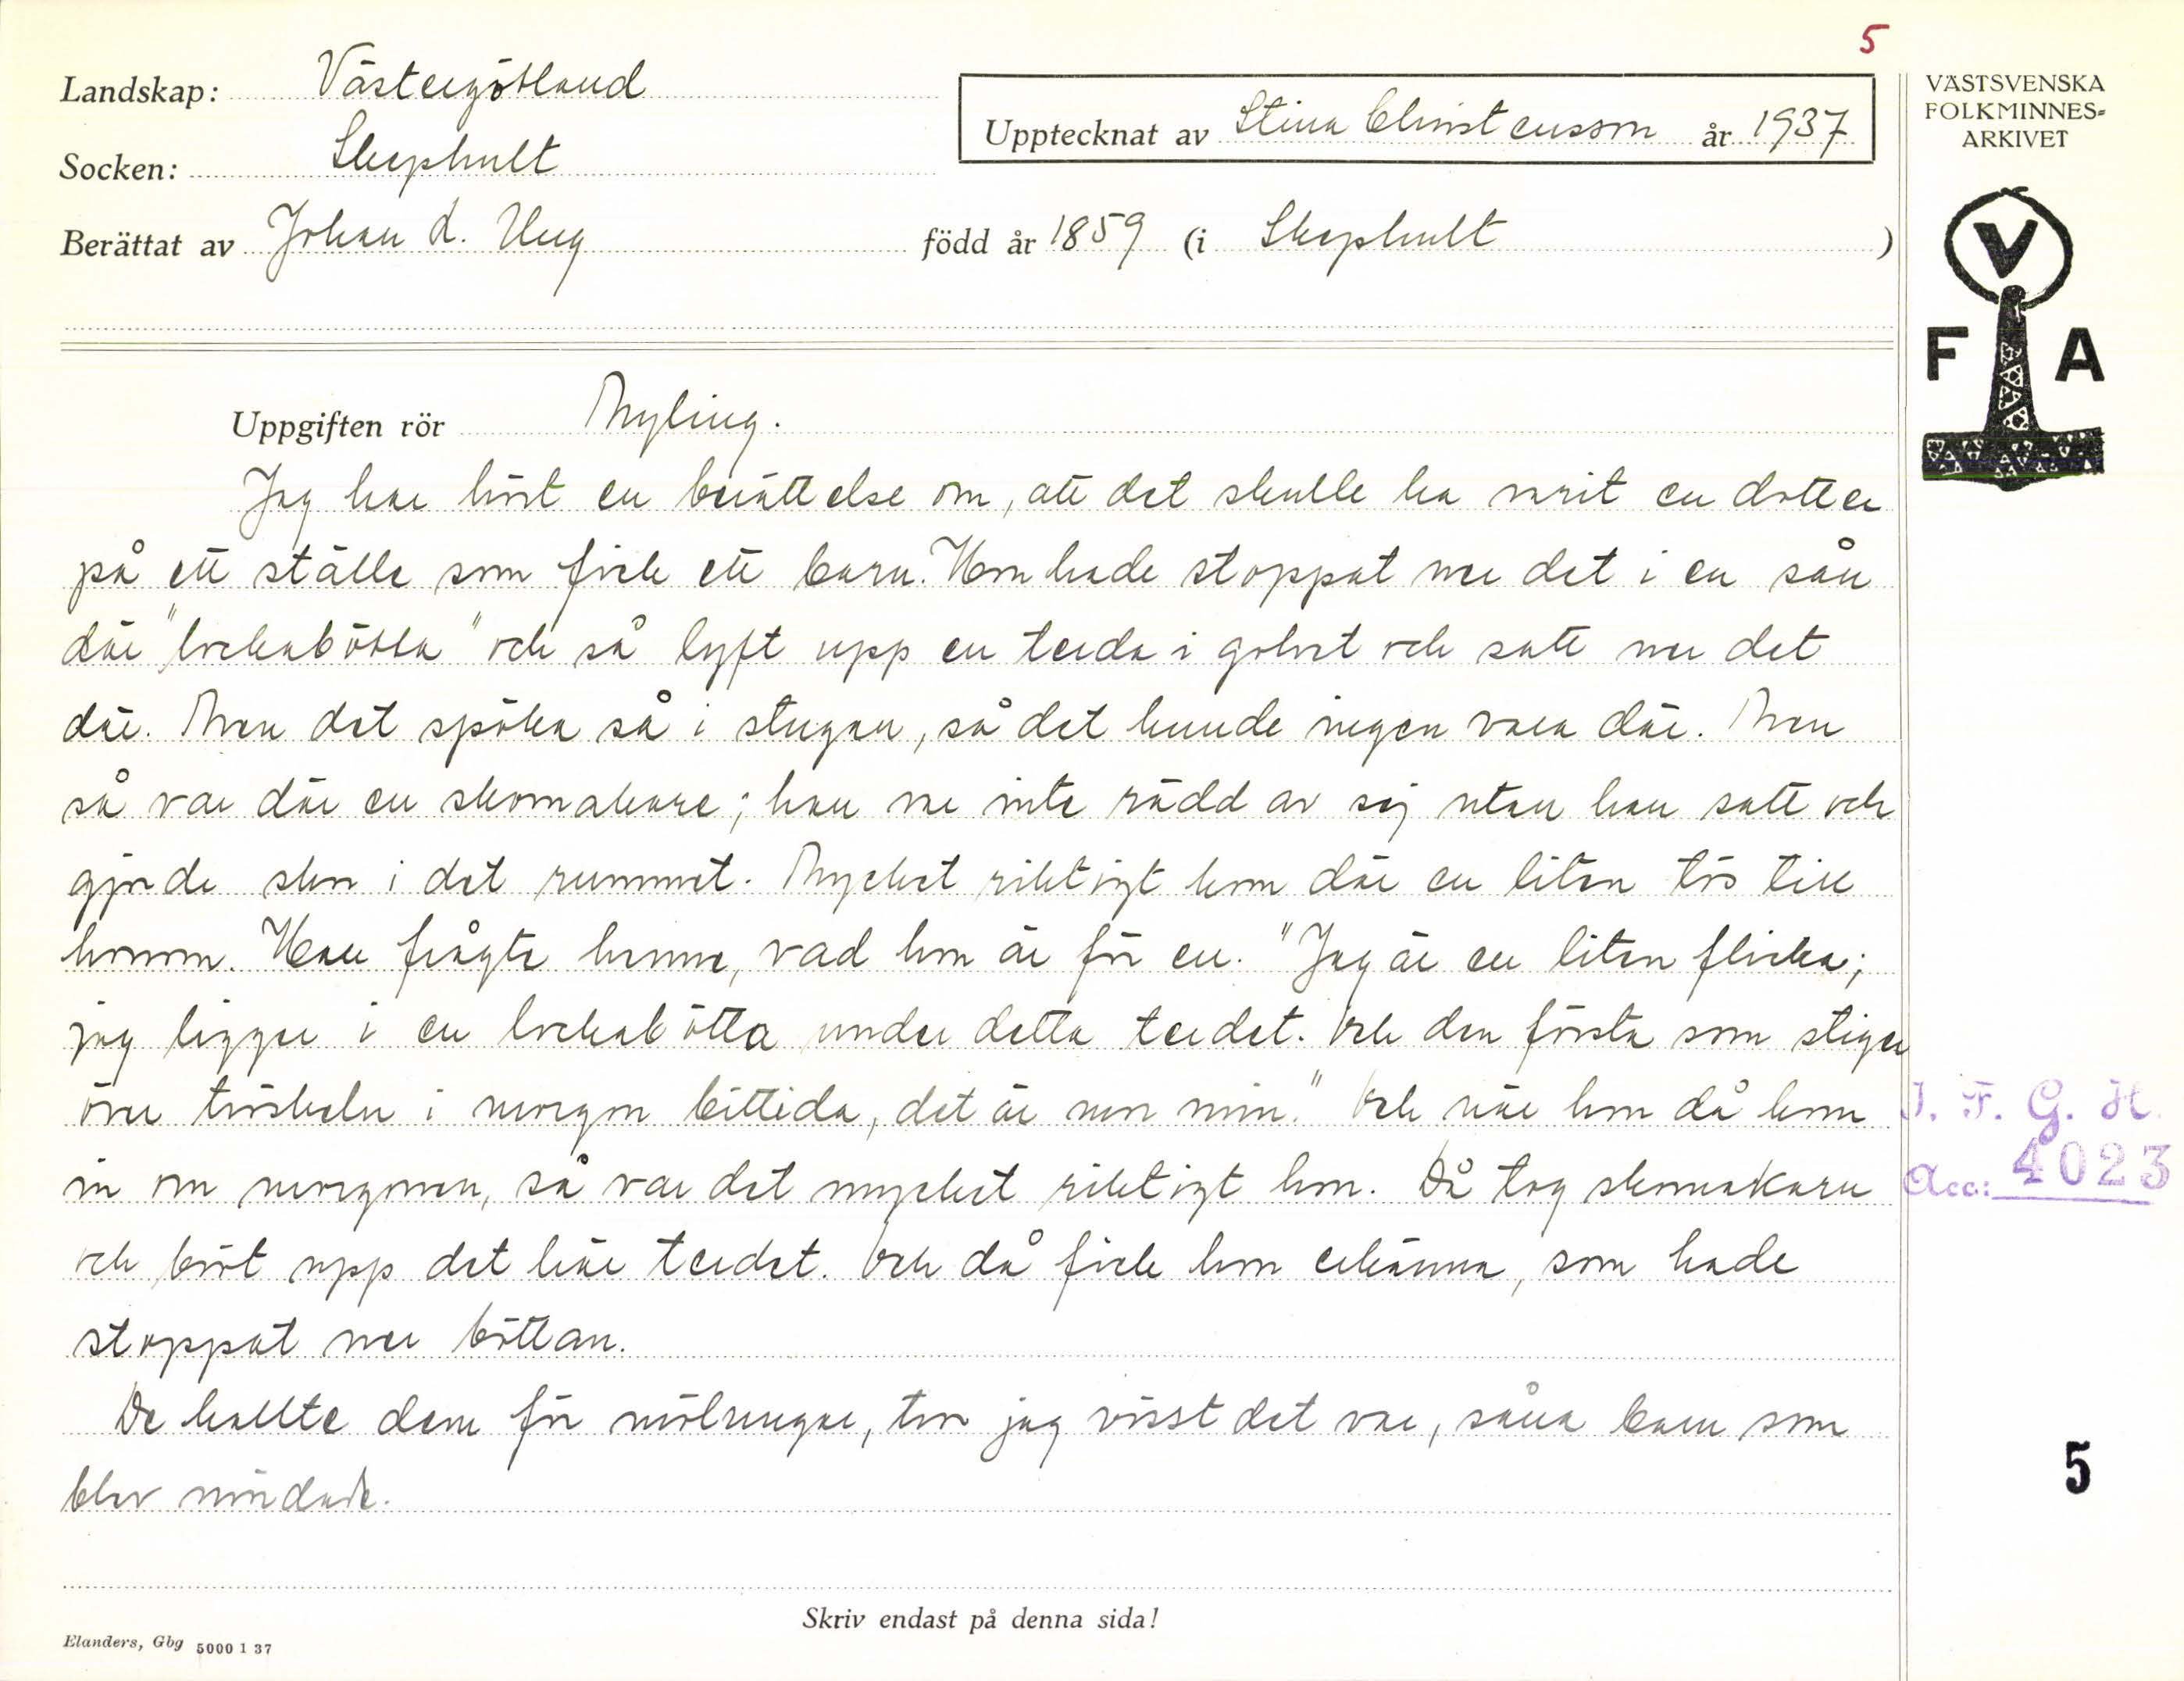 5
Landskap: Västergötland
Upptecknat av Stina Christensson år 1937
Socken: Skephult
Berättat av Johan L. Ung född år 1859 (i Skephult )
VÄSTSVENSKA
FOLKMINNES=
ARKIVET
V
F A
Uppgiften rör Myling.
Jag har hört en berättelse om, att det skulle ha varit en dotter
på ett ställe som fick ett barn. Hon hade stoppat ner det i en sån
där "lockabötta" och så lyft upp en terda i golvet och satt ner det
där. Men det spöka så i stugan, så det kunde ingen vara där. Men
så var där en skomakare; han va inte rädd av sej utan han satt och
gjorde skor i det rummet. Mycket riktigt kom där en liten tös till
honom. Han frågte henne, vad hon är för en. "Jag är en liten flicka;
jag ligger i en lockabötta under detta terdet. Och den första som stiger
över tröskeln i morgon bittida, det är mor min." Och när hon då kom
in om morgonen, så var det mycket riktigt hon. Då tog skomakarn
och bröt upp det här terdet. Och då fick hon erkänna, som hade
stoppat ner böttan.
De kallte dem för mölnungar, tror jag visst det var, såna barn som
blev mördade.
I. F. G. H.
Acc: 4023
5
Skriv endast på denna sida!
Elanders, Gbg 5000 1 37